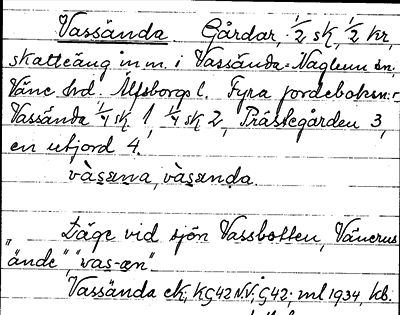 Vassända. Gårdar, 1/2 sk, 1/2 kr,
skatteäng m.m. i Vassända-Naglum sn,
Väne hd. Älfsborgs l. Fyra jordeboksn:r
Vassända 1/4 sk 1, 1/4 sk 2, Prästegården 3,
en utjord 4.
vàsęna, vàsęnda.
Läge vid sjön Vassbotten, Vänerns
"ände", "vas-æn"
Vassända ek; KG42 NV; G42; ml 1934, kb.